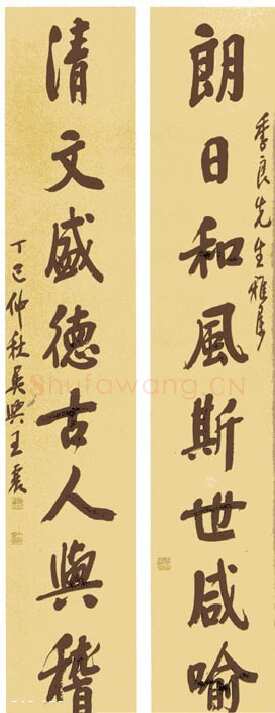 朗日和風斯世咸喻
季良先生雅屬
清文盛德古人與稽
丁巳仲秋吳興王震
Shufawang.CN